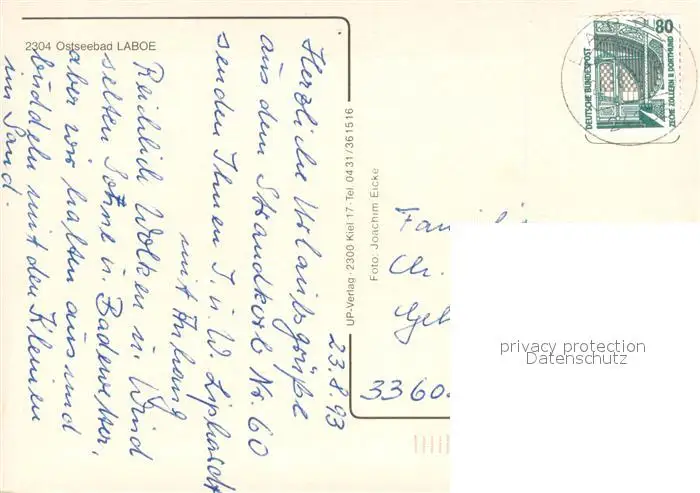 2304 Ostseebad LABOE
23.8.93
Herzliche Urlaubsgrüße
aus dem Strandkorb Nr. 60
senden Ihnen I. u. W.
mit Anhang
Reichlich Wolken u. Wind
selten Sonne u. Badewetter,
aber wir halten aus und
buddeln mit den Kleinen
im Sand.
UP-Verlag · 2300 Kiel 17 · Tel. 0431/361516
Foto: Joachim Eicke
DEUTSCHE BUNDESPOST
80
ZECHE ZOLLERN II DORTMUND
Ch.
3360
privacy protection
Datenschutz